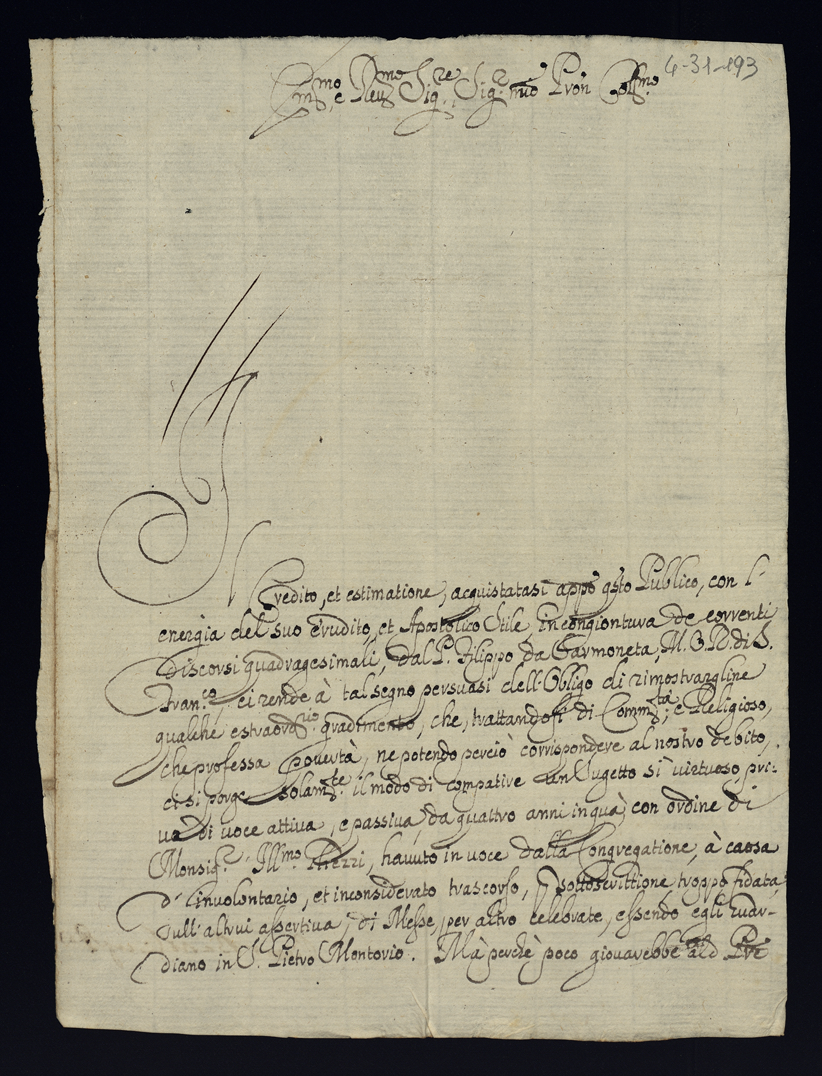 Em.mo e Reu.mo Sig.re, Sig.r mio Pron Coll.mo
4-31-193
Il Credito, et estimatione, acquistatasi appo q̃sto Publico, con l'
energia del suo erudito, et Apostolico Stile, in congiontura de correnti
Discorsi quadragesimali, dal P. Filippo da Carmoneta, M. O. R. di S.
Fran.co, ci rende à tal segno persuasi dell'Obligo di rimostrargline
qualche estraord.rio gradimento, che, trattandosi di Comm.tà, e Religioso,
che professa povertà, ne potendo perciò corrispondere al nostro debito,
ci si porge solam.te il modo di compatire un Sugetto sì virtuoso, pri-
uo di voce attiua, e passiua, da quattro anni in quà, con ordine di
Monsig.r Ill.mo havuto in voce dalla Congregatione, à caosa
d'involontario, et inconsiderato trascorso, sottoscrittione troppo fidata,
sull'altrui assertiva, di Messe, per altro celebrate, essendo egli Guar-
diano in S. Pietro Montorio. Mà perche poco giouarebbe al d. Pre